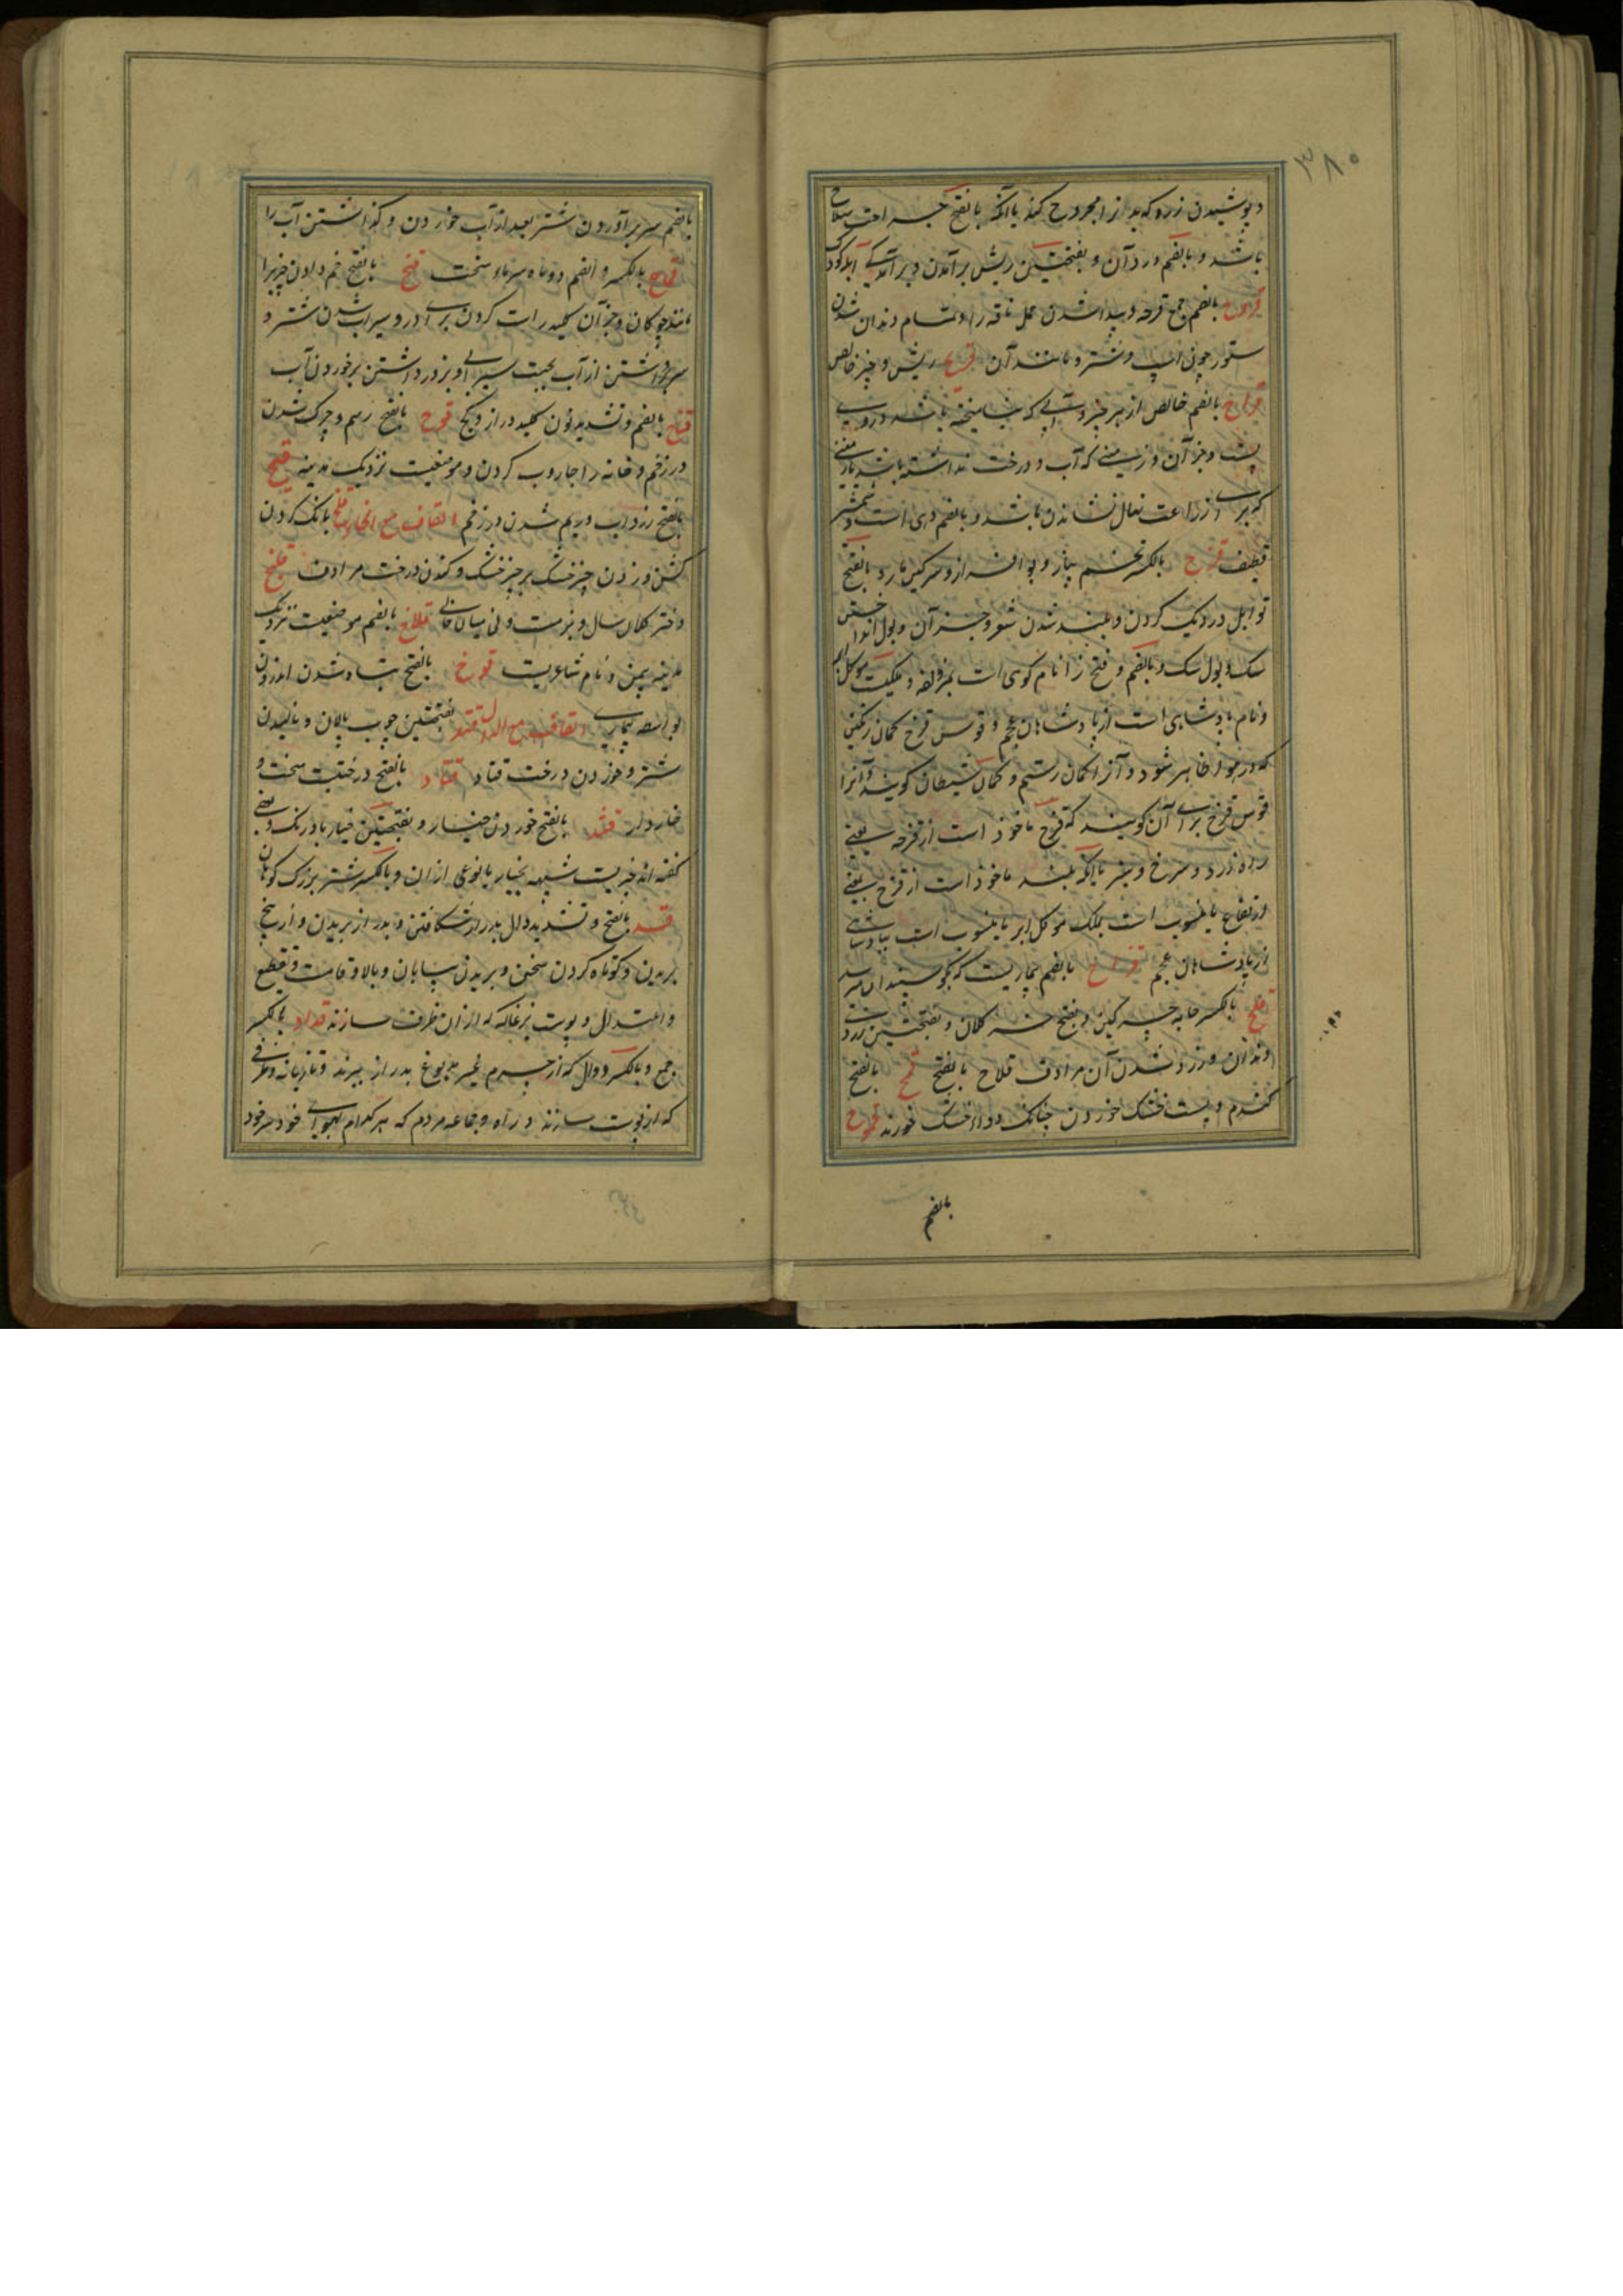 ۳۸۰
و پوشیدن زره که بدنرا مجروح کند یا آنکه بالفتح جراحت سلاح
باشد و بالضم درد آن و بفتحتین ریش برآمدن و برآمدگی آبله کودک
قروح بالضم جمع قرحه و پیدا شدن حمل ناقه را و تمام دندان شدن
ستور چون اسپ و شتر و مانند آن قریح ریش و چیز خالص
قراح بالضم خالص از هر چیز و آبی که نیامیخته باشد درو
پست و جز آن و زمینی که آب و درخت نداشته باشد یا زمینی
که برای زراعت نهال نشاندن باشد و بالضم دهی است
قطیف قزح بالکسر تخم پیاز و بوافزار و سرگین مار و بالفتح
توابل در دیک کردن و بلند شدن شعر و جز آن و بول انداختن
سک و بول سک و بالضم و فتح زا نام کوهی است بمزدلفه و ملکیست موکل ابر
و نام پادشاهی است از پادشاهان عجم و قوس قزح کمان رنگین
که در هوا ظاهر شود و آنرا کمان رستم و کمان شیطان گویند و آنرا
قوس قزح برای آن گویند که قزح ماخوذ است از قزحه یعنی
راه زرد و سرخ و سبز یا آنکه بلند ماخوذ است از قزح بمعنی
ارتفاع یا منسوب است بملک موکل ابر یا منسوب است بپادشاهی
از پادشاهان عجم قزاح بالضم بیماریست که بگوسپندان رسد
قلح بالکسر جامه چرکین و بفتح خر کلان و بفتحتین زردی
دندان و زرد شدن آن مرادف قلاح بالفتح قمح بالفتح
گندم و پست خشک خوردن چنانکه دواء خشک خورند قموح
بالضم
بالضم سر برآوردن شتر بعد از آب خوردن و گذاشتن آب را
قماح بالکسر و الضم دو ماه سرماء سخت قنح بالفتح خم دادن چیزیرا
مانند چوگان و جز آن کلید راست کردن برای در و سیراب شدن شتر و
سر برداشتن از آب بجهت سیرابی و بزور داشتن برخوردن آب
قناح بالضم و تشدید نون کلید دراز و کج قوح بالفتح ریم و چرک شدن
در زخم و خانه را جاروب کردن و موضعیست نزدیک مدینه قیح
بالفتح زرداب و ریم شدن در زخم القاف مع الخاء قلخ بانک کردن
کشن و زدن چیز خشک بر چیز خشک و کندن درخت مرادف قلیخ
و خر کلان سال و فربهست و نی میان خالی قلاخ بالضم موضعیست نزدیک
مدینه یمن و نام شاعریست قوخ بالفتح تباه شدن اندرون
بواسطه بیماری القاف مع الدال قتد بفتحتین چوب پالان و نالیدن
شتر و خوردن درخت قتاد قتاد بالفتح درختیست سخت و
خاردار قثد بالفتح خوردن خیار و بفتحتین خیار بادرنک و بعضی
گفته اند چیزیست شبیه بخیار یا نوعی از ان و بالکسر شتر بزرک کوهان
قد بالفتح و تشدید دال بدراز شکافتن و بدراز بریدن و از بیخ
بریدن و کوتاه کردن سخن و بریدن بیابان و بالا و قامت و تقطیع
و اعتدال و پوست بزغاله که از ان ظرف سازند قداد بالکسر
جمع و بالکسر دوال که از چرم غیر مدبوغ بدراز ببرند و تازیانه و ظرفی
که از پوست سازند و راه و جماعه مردم که هر کدام بهوای خود سرخود